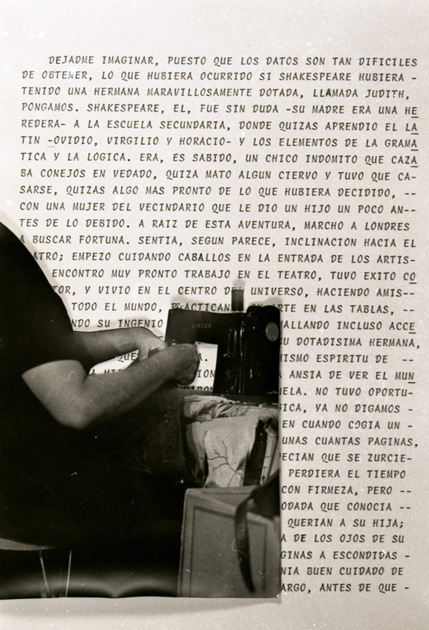 DEJADME IMAGINAR, PUESTO QUE LOS DATOS SON TAN DIFICILES
DE OBTENER, LO QUE HUBIERA OCURRIDO SI SHAKESPEARE HUBIERA -
TENIDO UNA HERMANA MARAVILLOSAMENTE DOTADA, LLAMADA JUDITH,
PONGAMOS. SHAKESPEARE, EL, FUE SIN DUDA -SU MADRE ERA UNA HE
REDERA- A LA ESCUELA SECUNDARIA, DONDE QUIZAS APRENDIO EL LA
TIN -OVIDIO, VIRGILIO Y HORACIO- Y LOS ELEMENTOS DE LA GRAMA
TICA Y LA LOGICA. ERA, ES SABIDO, UN CHICO INDOMITO QUE CAZA
BA CONEJOS EN VEDADO, QUIZA MATO ALGUN CIERVO Y TUVO QUE CA-
SARSE, QUIZAS ALGO MAS PRONTO DE LO QUE HUBIERA DECIDIDO, --
CON UNA MUJER DEL VECINDARIO QUE LE DIO UN HIJO UN POCO AN--
TES DE LO DEBIDO. A RAIZ DE ESTA AVENTURA, MARCHO A LONDRES
A BUSCAR FORTUNA. SENTIA, SEGUN PARECE, INCLINACION HACIA EL
EATRO; EMPEZO CUIDANDO CABALLOS EN LA ENTRADA DE LOS ARTIS-
ENCONTRO MUY PRONTO TRABAJO EN EL TEATRO, TUVO EXITO CO
TOR, Y VIVIO EN EL CENTRO DE UNIVERSO, HACIENDO AMIS--
TODO EL MUNDO, PRACTICAN RTE EN LAS TABLAS, --
NDO SU INGENIO SINGER ALLANDO INCLUSO ACCE
U DOTADISIMA HERMANA,
QUE A. MISMO ESPIRITU DE --
ANSIA DE VER EL MUN
ELA. NO TUVO OPORTU-
GICA, YA NO DIGAMOS -
EN CUANDO COGIA UN -
UNAS CUANTAS PAGINAS,
ECIAN QUE SE ZURCIE-
PERDIERA EL TIEMPO
CON FIRMEZA, PERO --
ODADA QUE CONOCIA --
QUERIAN A SU HIJA;
A DE LOS OJOS DE SU
GINAS A ESCONDIDAS -
NIA BUEN CUIDADO DE
ARGO, ANTES DE QUE -